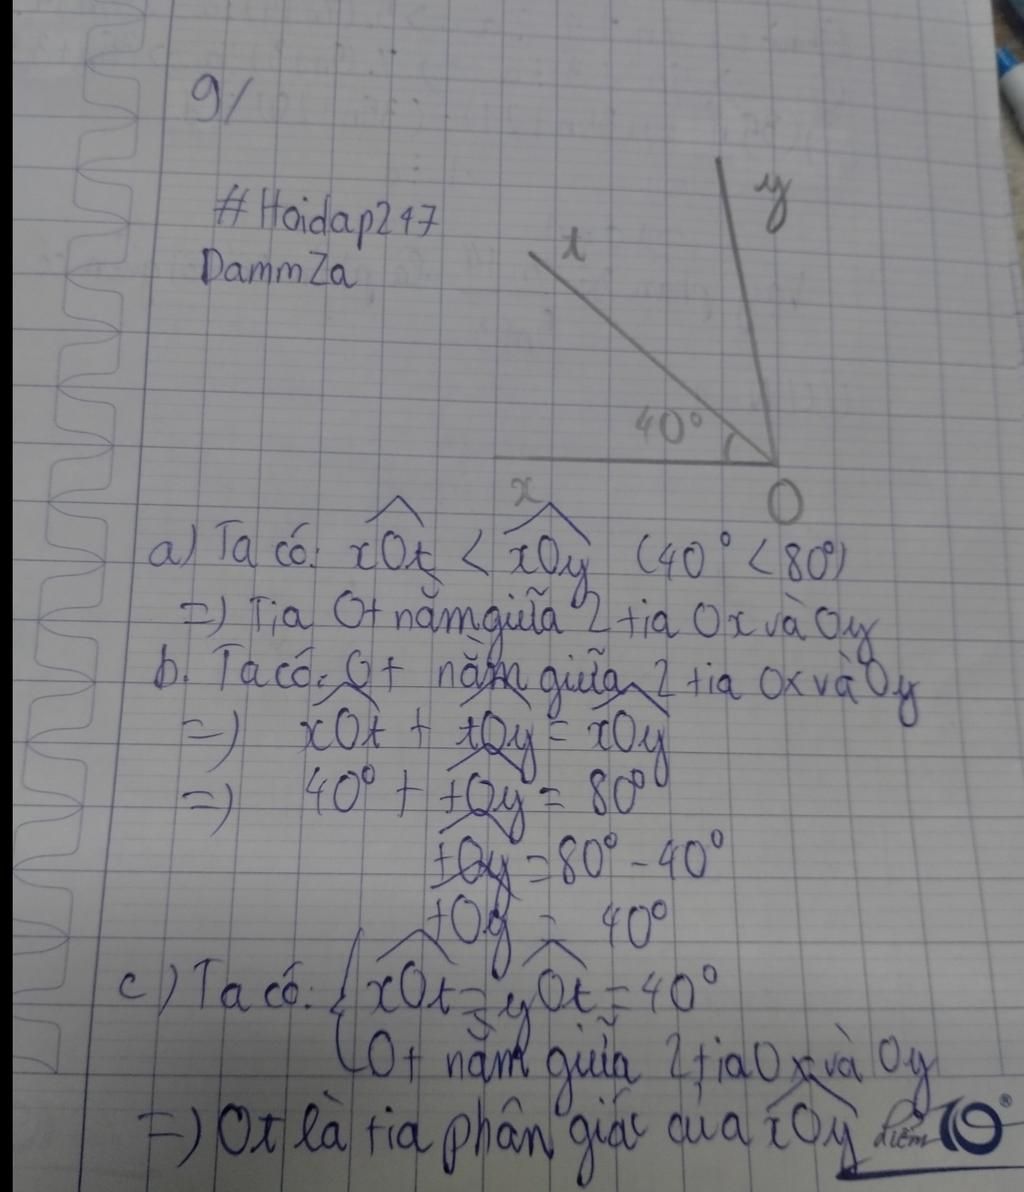 9/
#Hoidap247
DammZa
y
t
40°
x
O
a) Ta có: xOt < xOy (40° < 80°)
=) Tia Ot nằm giữa 2 tia Ox và Oy
b. Ta có: Ot nằm giữa 2 tia Ox và Oy
=) xOt + tOy = xOy
=) 40° + tOy = 80°
tOy = 80° - 40°
tOy = 40°
c) Ta có: { xOt = yOt = 40°
Ot nằm giữa 2 tia Ox và Oy
=) Ot là tia phân giác của xOy điểm 10